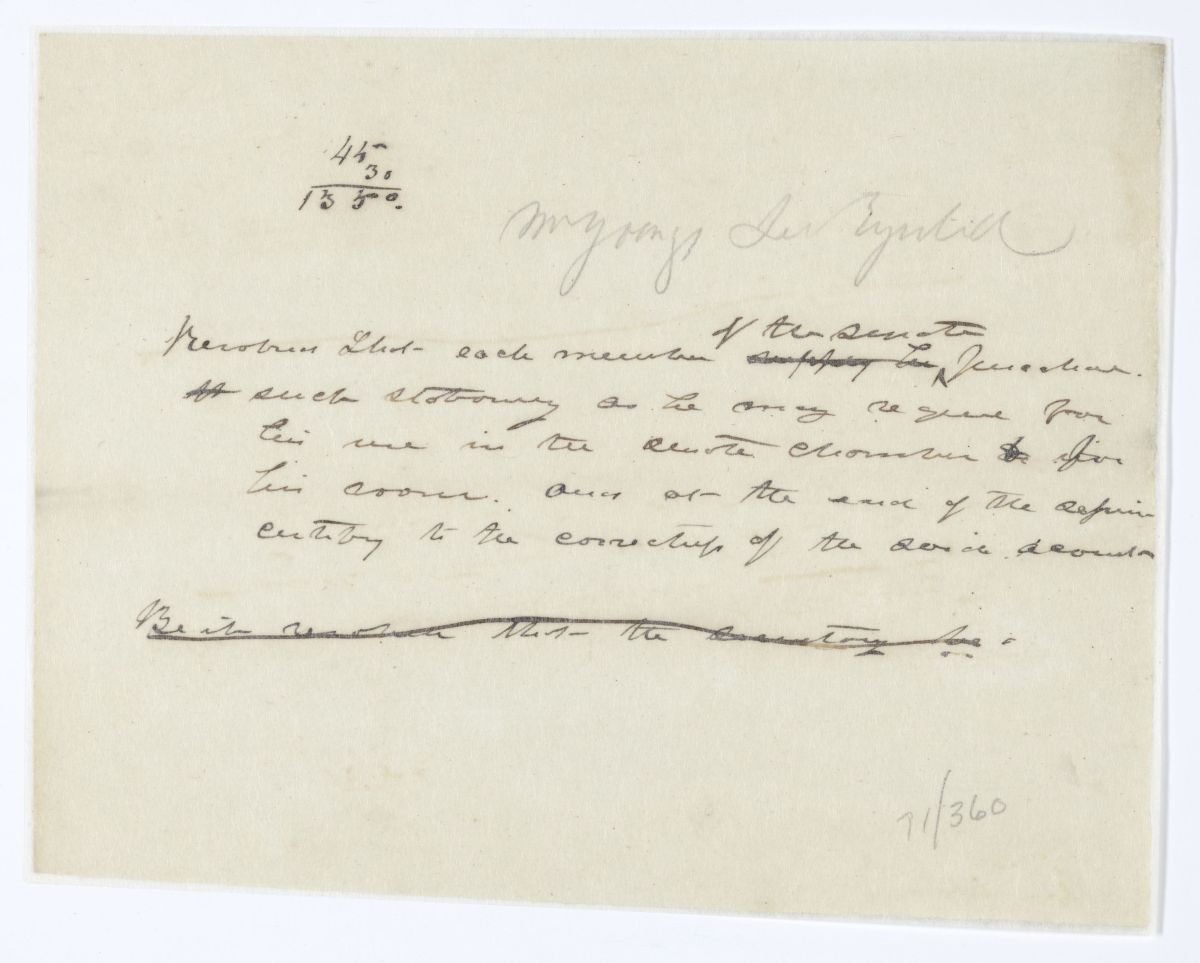 45
30
1350.
Mr Youngs
of the senate
Resolved That each member supply he purchase
such stationary as he may require for
his use in the senate chamber & for
his room. and at the end of the session
certify to the correctness of the said accounts
Be it resolved that the secretary be
71/360